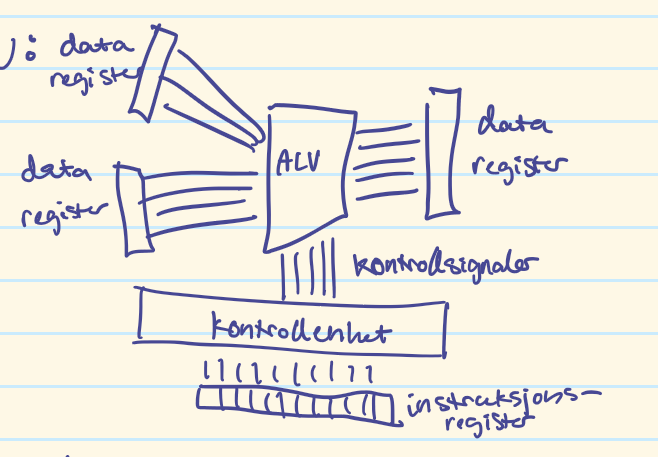 ): data
register
data
register
ALU
data
register
kontrollsignaler
kontrollenhet
instruksjons-
register